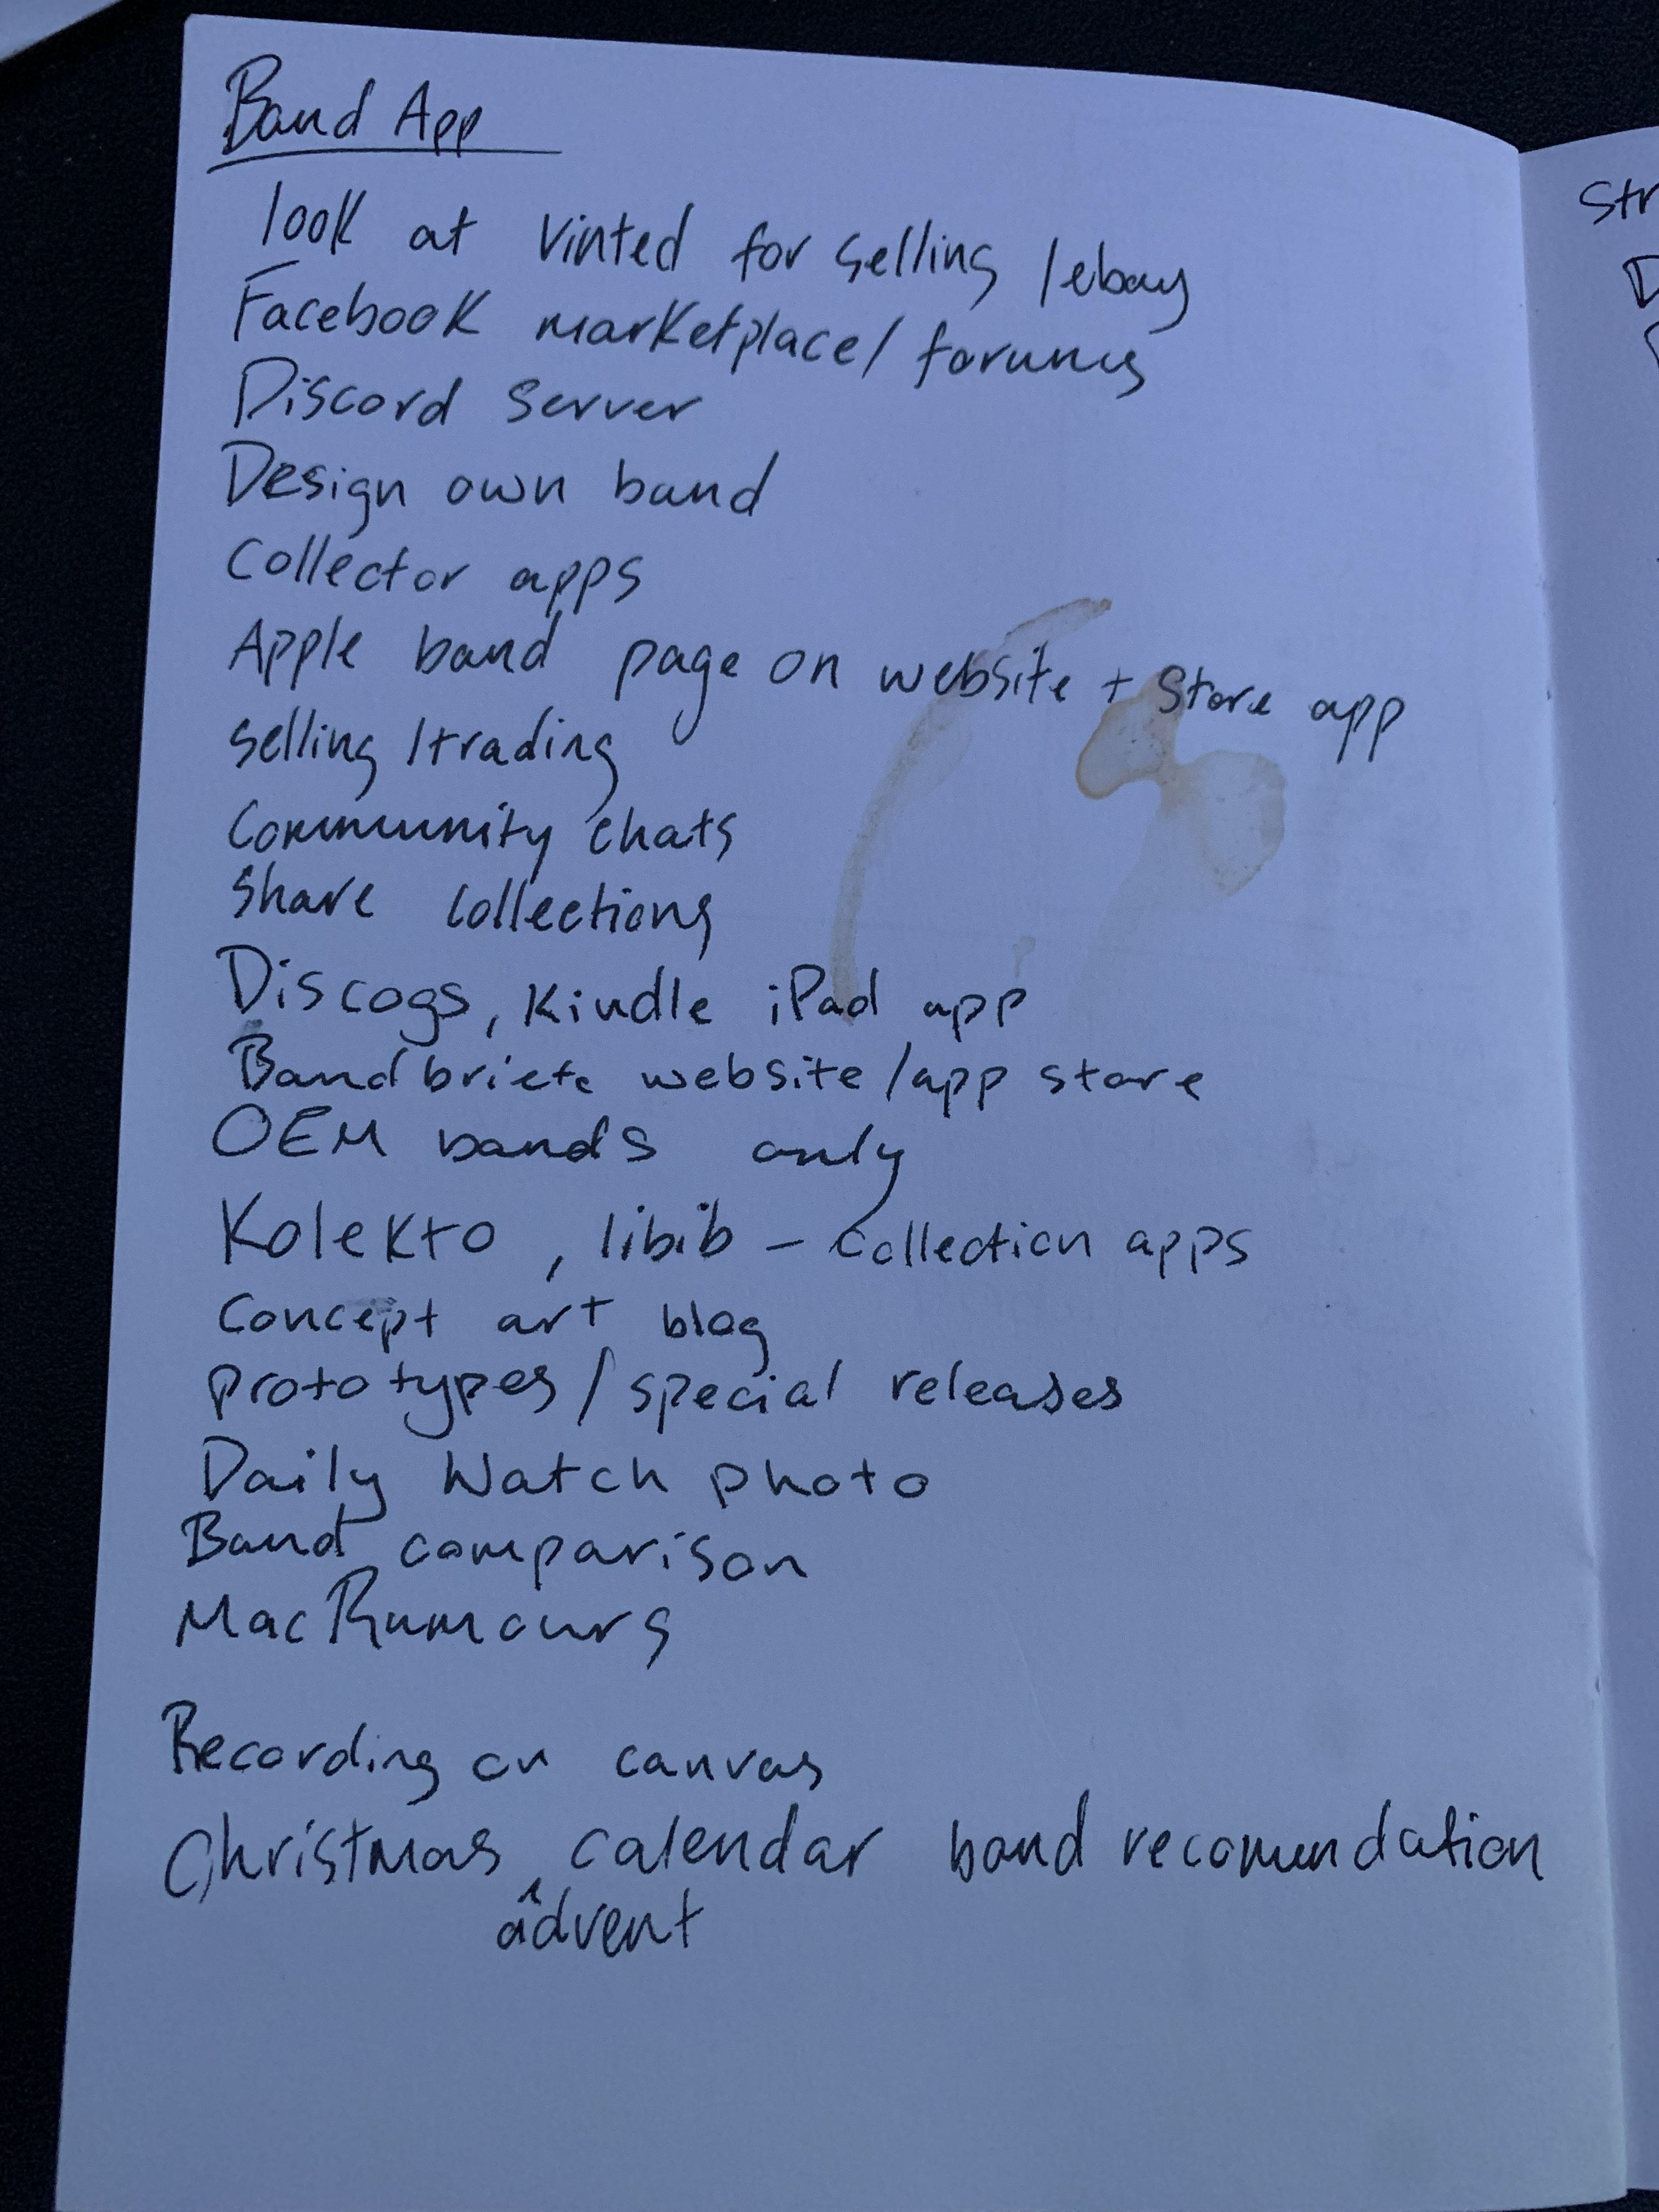 Band App
look at Vinted for selling /ebay
Facebook marketplace/ forums
Discord Server
Design own band
Collector apps
Apple band page on website + Store app
selling /trading
Community chats
Share collections
Discogs, Kindle iPad app
Bandbriete website/app store
OEM bands only
Kolekto, libib - collection apps
Concept art blog
prototypes/special releases
Daily Watch photo
Band comparison
MacRumours
Recording on canvas
Christmas calendar band recomendation
advent
Str
D